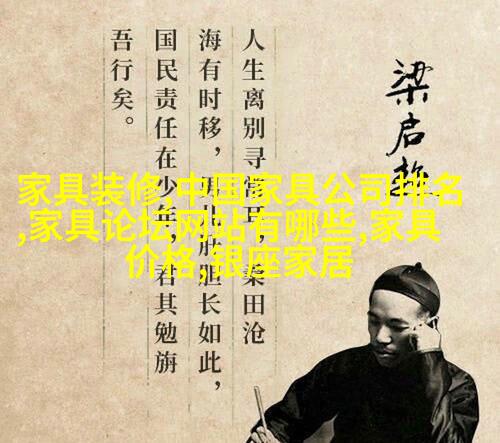 人生离别寻常耳，桑田沧
海有时移，男儿肝胆长如此，
国民责任在少年，君其勉旃
吾行矣。
梁启超
家具装修,中国家具公司排名
,家具论坛网站有哪些,家具
价格,银座家居